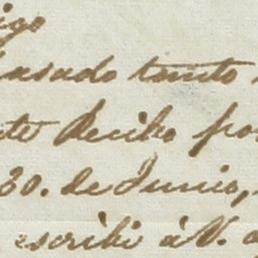 igo
pasado tanto
te Recibo por
30. de Junio,
escribi á V.